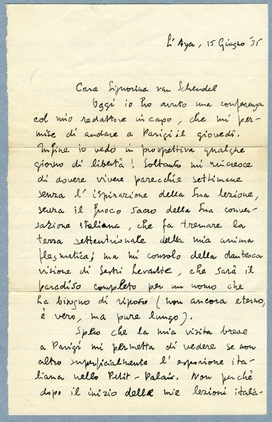 L'Aja, 15 Giugno '35
Cara Signorina van Schendel
Oggi io ho avuto una conferenza
col mio redattore in capo, che mi per-
mite di andare a Parigi il giovedì.
Infine io vedo in prospettiva qualche
giorno di libertà! Soltanto mi rincresce
di dovere vivere parecchie settimane
senza l'ispirazione della Sua lezione,
senza il fuoco sacro della Sua conver-
sazione italiana, che fa tremare la
terra settentrionale della mia anima
flemmatica; ma mi consolo della dantesca
visione di Sestri Levante, che sarà il
paradiso completo per un uomo che
ha bisogno di riposo (non ancora eterno,
è vero, ma pure lungo).
Spero che la mia visita breve
a Parigi mi permetta di vedere se non
altro superficialmente l'esposizione ita-
liana nello Petit-Palais. Non perchè
dopo il inizio delle mie lezioni italia-